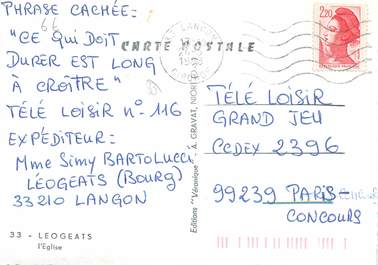 PHRASE CACHÉE :
66
"CE QUI DOIT
DURER EST LONG
À CROÎTRE"
TÉLÉ LOISIR n° 116
EXPÉDITEUR :
Mme Simy BARTOLUCCI
LÉOGEATS (BOURG)
33210 LANGON
33 - LEOGEATS
l'Eglise
CARTE POSTALE
LANGON
2,20
Editions "Véronique" - A. GRAVAT, NIORT
TÉLÉ LOISIR
GRAND JEU
CEDEX 2396
99239 PARIS
CONCOURS